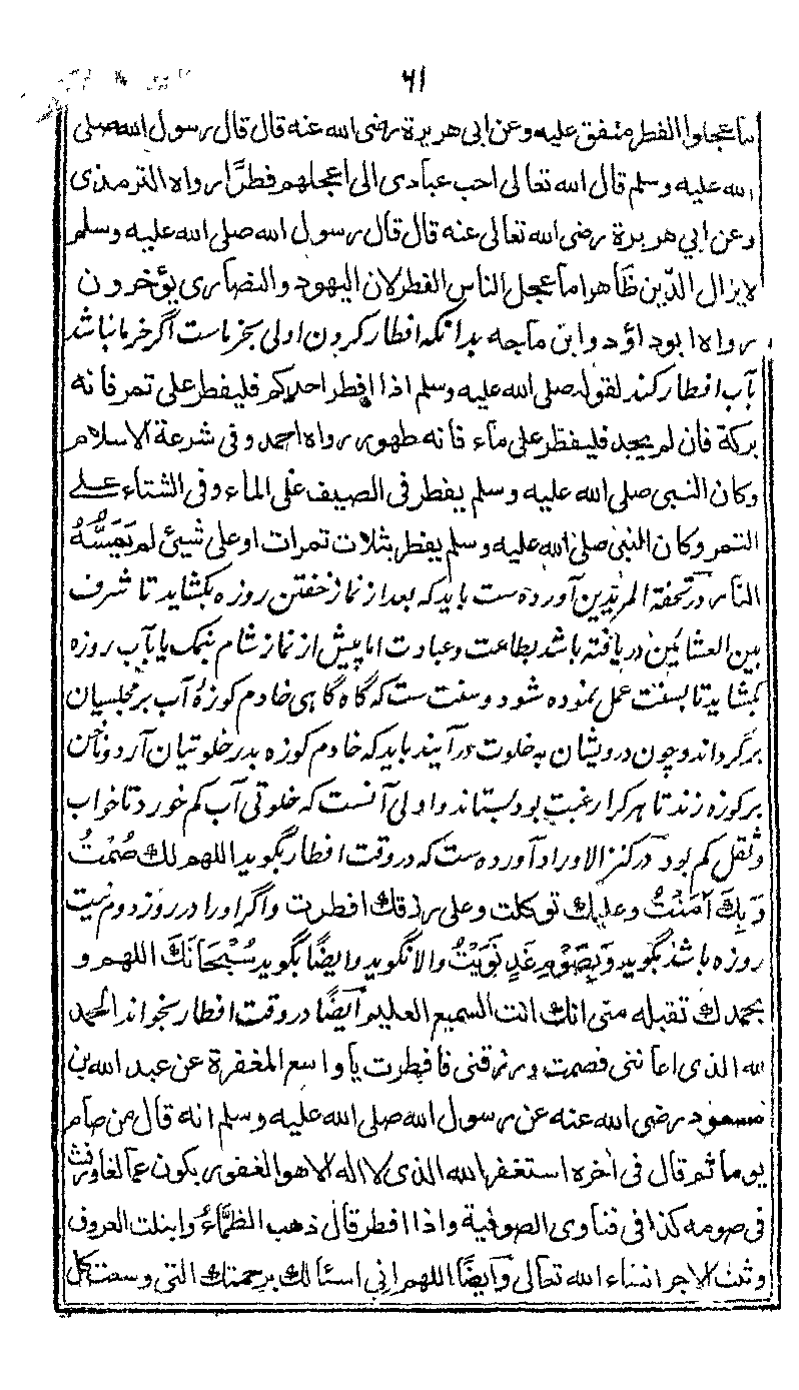 ۶۱
ما عجلوا الفطر متفق عليه وعن ابي هريرة رضى الله عنه قال قال رسول الله صلى
الله عليه وسلم قال الله تعالى احب عبادى الى اعجلهم فطرًا رواه الترمذى
وعن ابي هريرة رضى الله تعالى عنه قال قال رسول الله صلى الله عليه وسلم
لا يزال الدّين ظاهرا ما عجل الناس الفطر لان اليهود والنصارى يؤخرون
رواه ابوداؤد وابن ماجه بدانکه افطار کردن اولی بخرماست اگر خرما نباشد
بآب افطار کند لقوله صلى الله عليه وسلم اذا افطر احدكم فليفطر على تمر فانه
بركة فان لم يجد فليفطر على ماء فانه طهور رواه احمد وفى شرعة الاسلام
وكان النبى صلى الله عليه وسلم يفطر فى الصيف على الماء وفى الشتاء على
التمر وكان النبى صلى الله عليه وسلم يفطر بثلاث تمرات او على شيئ لم تمَسُّهُ
النار در تحفة المريدين آورده ست باید که بعد از نماز خفتن روزه بکشاید تا شرف
بین العشائین دریافته باشد بطاعت وعبادت اما پیش از نماز شام بنمک یا بآب روزه
بکشاید تا بسنت عمل نموده شود و سنت ست که گاه گاهی خادم کوزۀ آب بر مجلسیان
برگرداند و چون درویشان به خلوت در آیند باید که خادم کوزه بدر خلوتیان آرد و ناخن
بر کوزه زند تا هر کرا رغبت بود بستاند و اولی آنست که خلوتی آب کم خورد تا خواب
و ثقل کم بود در کنز الاوراد آورده ست که در وقت افطار بگوید اللهم لك صُمْتُ
وَبِكَ آمَنْتُ وعليك توكلت وعلى رزقك افطرت و اگر او را در روز دوم نیت
روزه باشد بگوید وَبِصَوْمِ غَدٍ نَوَيْتُ والا نگوید وایضًا بگوید سُبْحَانَكَ اللهم و
بحمدك تقبله منى انك انت السميع العليم ایضًا در وقت افطار بخواند الحمد
لله الذى اعاننى فصمت ورزقنى فافطرت يا واسع المغفرة عن عبد الله بن
مسعود رضى الله عنه عن رسول الله صلى الله عليه وسلم انه قال من صام
يوما ثم قال فى اخره استغفر الله الذى لا اله الا هو الغفور يكون عما لغا ورفث
فى صومه كذا فى فتاوى الصوفية واذا افطر قال ذهب الظَّمَاءُ وابتلت العروق
وثبت الاجر انشاء الله تعالى وايضًا اللهم انى اسئالك برحمتك التى وسعت كل